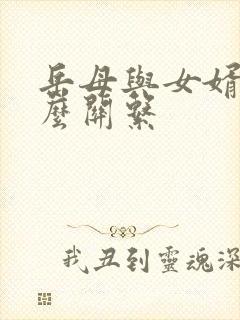 岳母與女婿
麼關繫
我丑到靈魂深